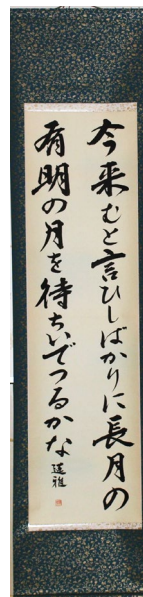 今来むと言ひしばかりに長月の
有明の月を待ちいでつるかな